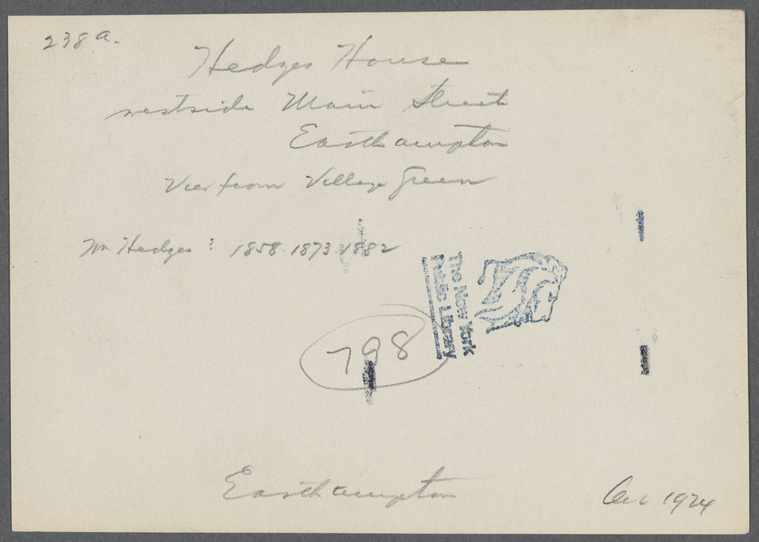 238a.
Hedges House
westside Main Street
Easthampton
View from Village Green
Wm Hedges? 1858. 1873. 1882
The New York
Public Library
798
Easthampton
1924